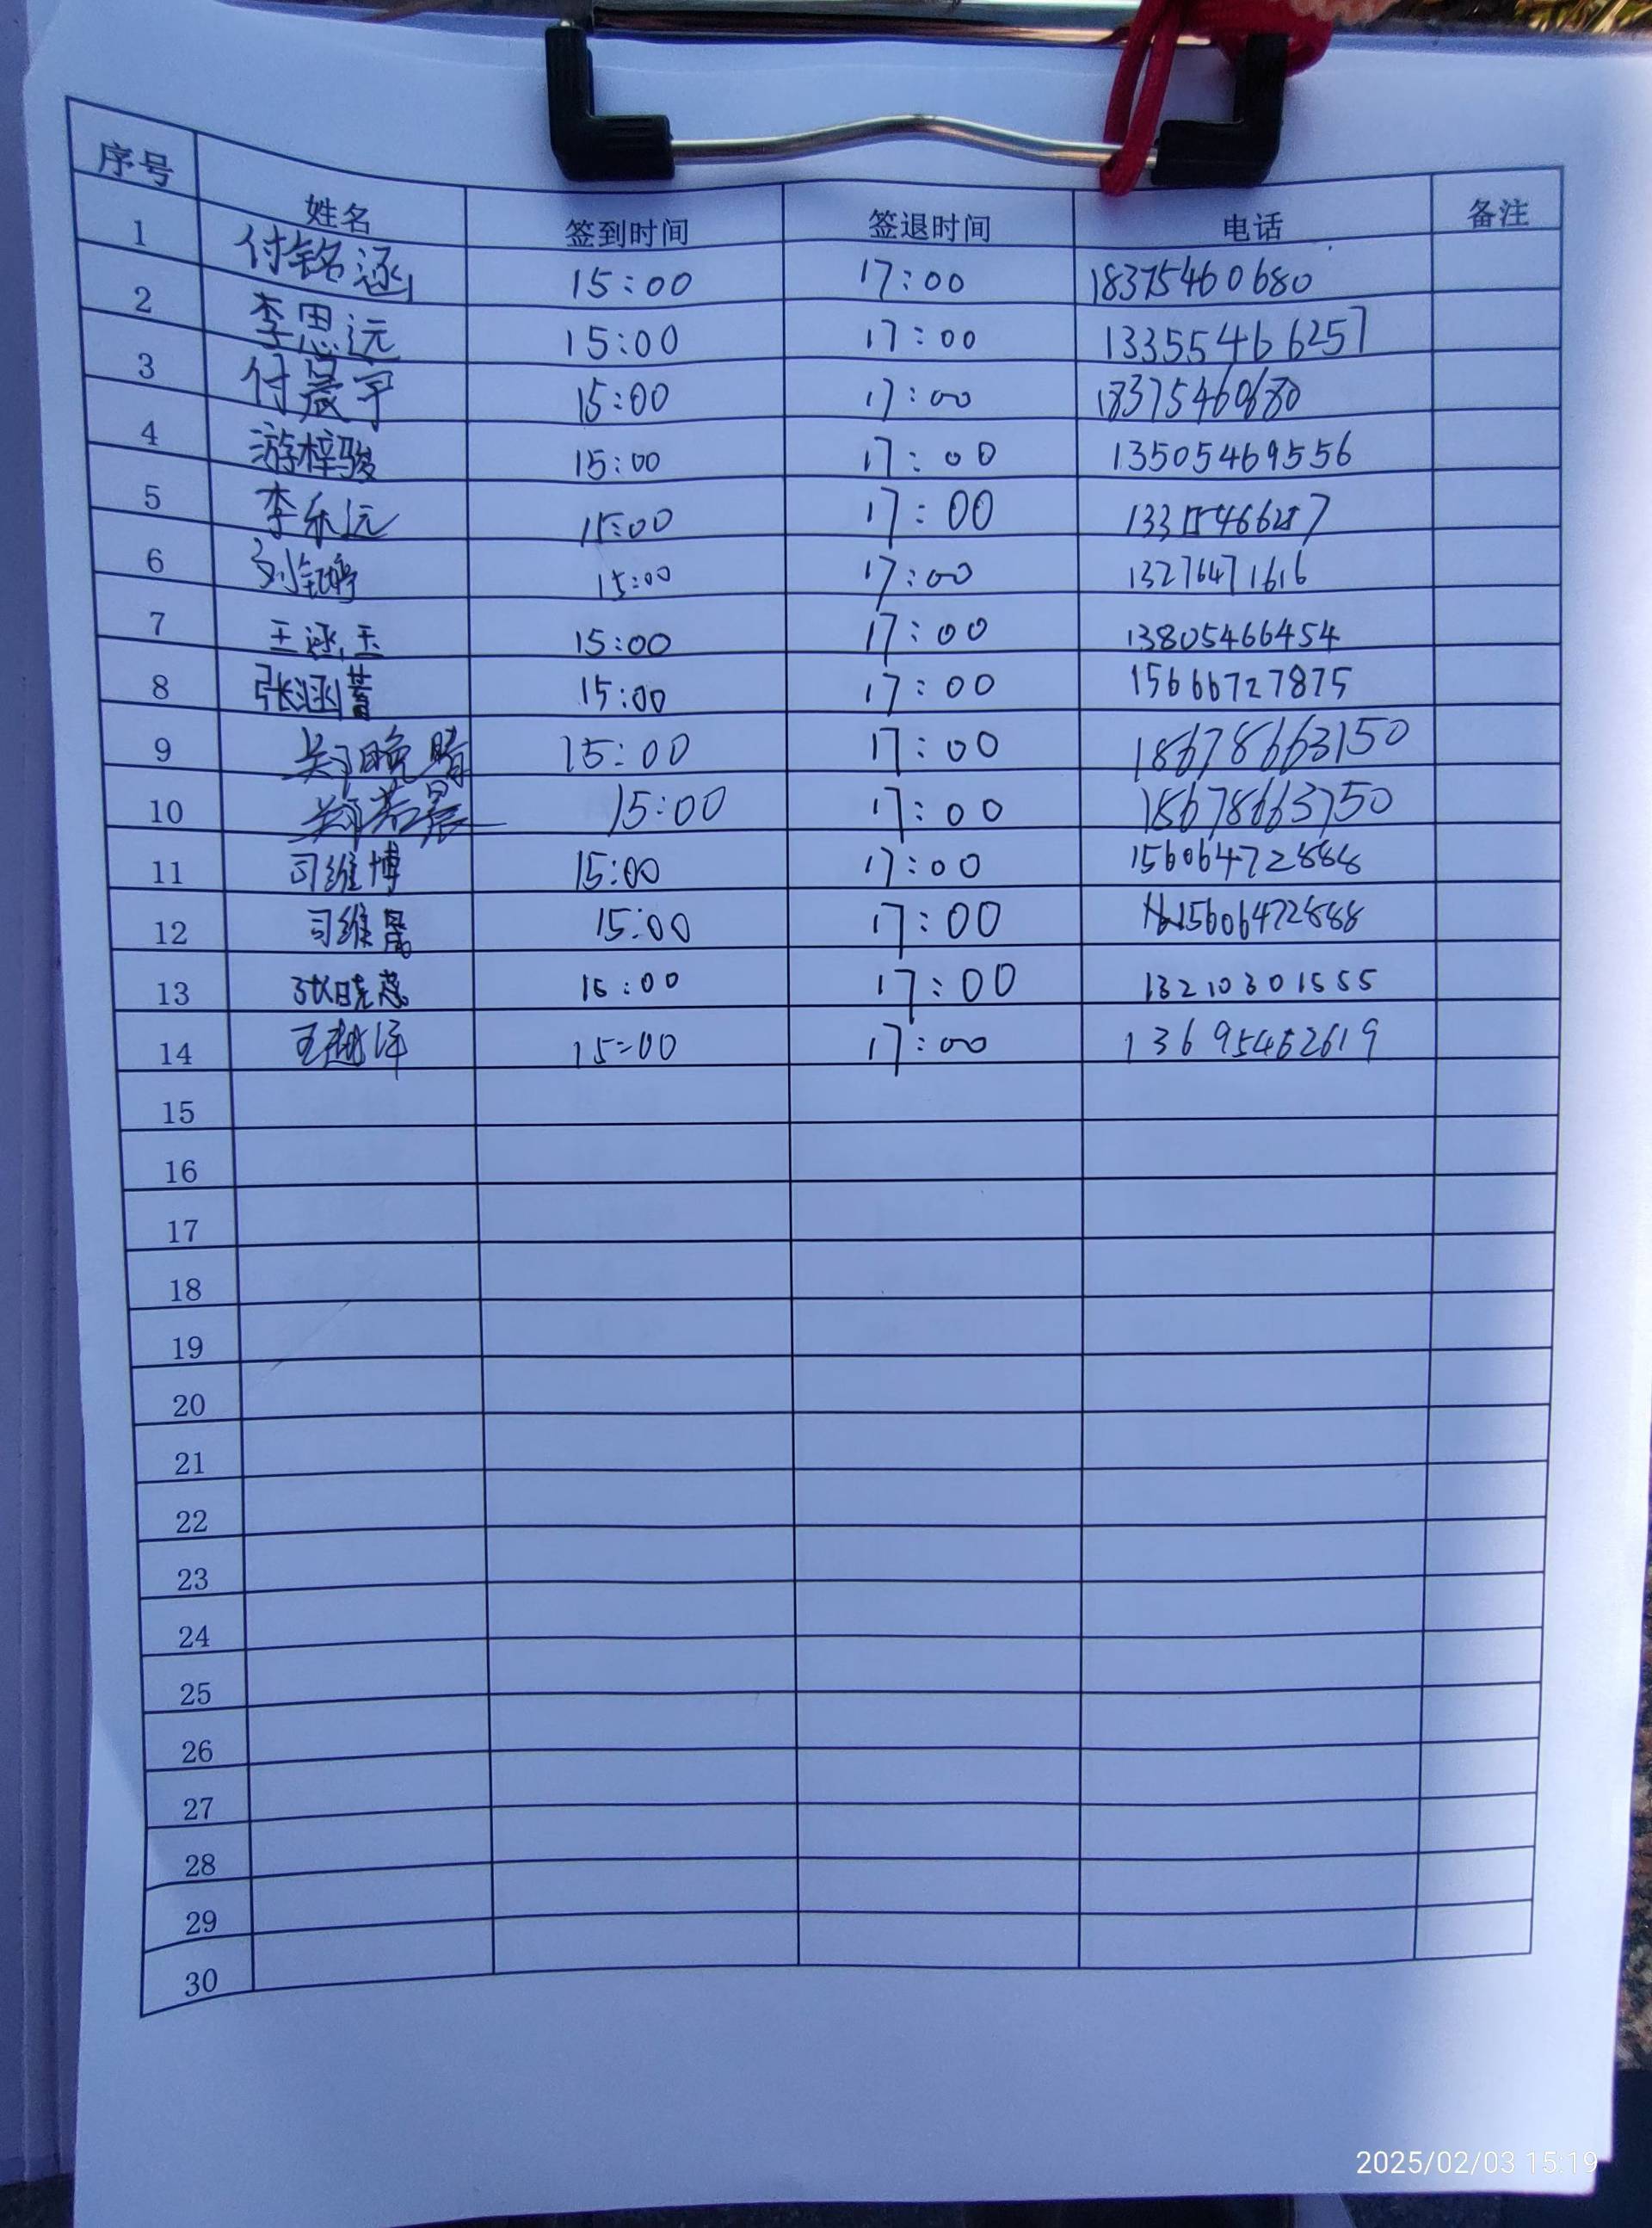 序号 姓名 签到时间 签退时间 电话 备注
1 付铭涵 15:00 17:00 18375460680
2 李思远 15:00 17:00 13355466257
3 付晨宇 15:00 17:00 18375460680
4 游梓骏 15:00 17:00 13505469556
5 李乐远 15:00 17:00
6 刘 15:00 17:00 13276471616
7 王涵玉 15:00 17:00 13805466454
8 张涵蓄 15:00 17:00 15666727875
9 郑晚晴 15:00 17:00 18678663150
10 郑若晨 15:00 17:00 18678663750
11 司维博 15:00 17:00 15606472888
12 司维 15:00 17:00 15606472888
13 张晓蕊 15:00 17:00 13210301555
14 王越洋 15:00 17:00 13695462619
15
16
17
18
19
20
21
22
23
24
25
26
27
28
29
30
2025/02/03 15:19